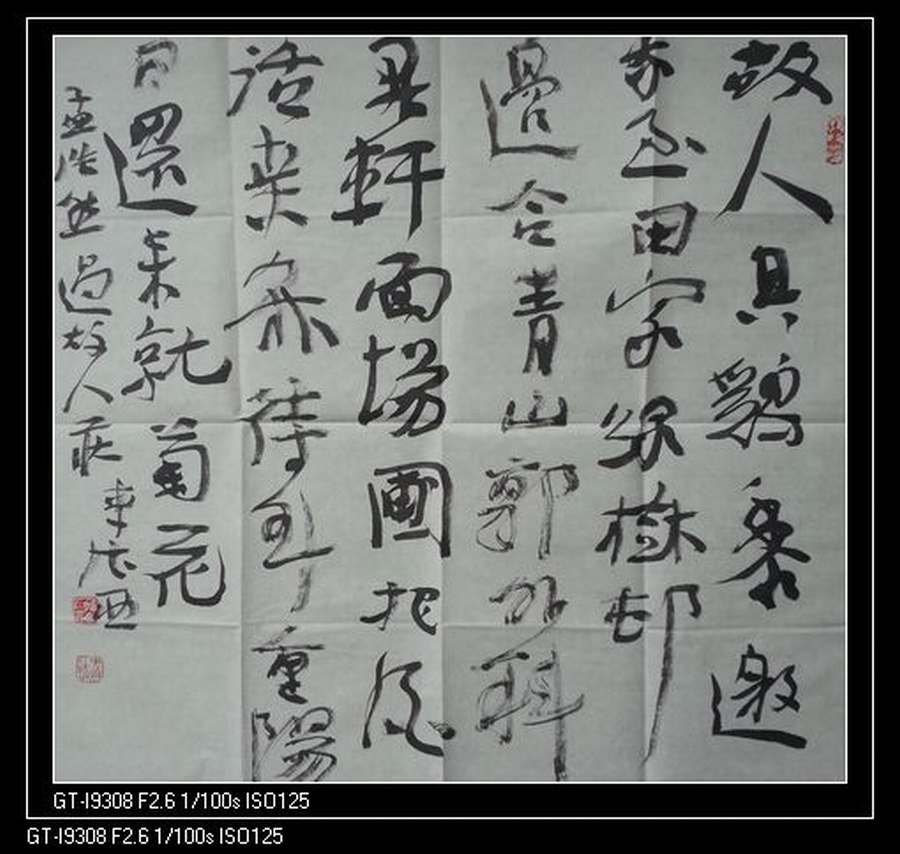 故人具鷄黍邀
我至田家綠樹邨
邊合青山郭外斜
開軒面場圃把酒
話桑麻待到重陽
日還来就菊花
孟浩然過故人莊
GT-I9308 F2.6 1/100s ISO125
GT-I9308 F2.6 1/100s ISO125